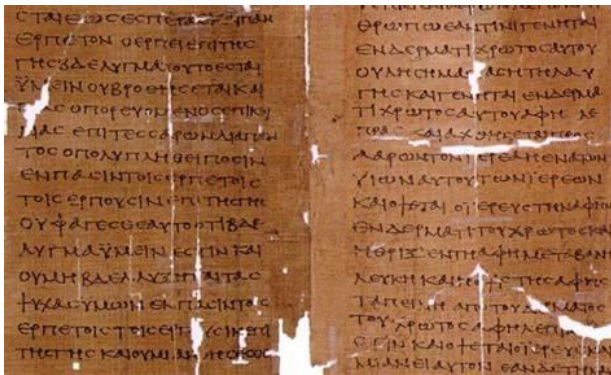 ϹΤΑΙΕΩϹΕϹΠΕΡΑϹ ΠΑΝ
ΕΡΠΕΤΟΝ ΟΕΡΠΕΙΕΠΙΤΗϹ
ΓΗϹΒΔΕΛΥΓΜΑΟΥΤΟΕϹΤΑΙ
ΫΜΕΙΝΟΥΒΡΩΘΗϹΕΤΑΙΚΑΙ
ΠΑϹΟΠΟΡΕΥΟΜΕΝΟϹΕΠΙΚΟΙ
ΛΙΑϹ ΕΠΙΤΕϹϹΑΡΩΝΔΙΑΠΑΝ
ΤΟϹΟΠΟΛΥΠΛΗΘΕΙΠΟϹΙΝ
ΕΝΠΑϹΙΝΤΟΙϹΕΡΠΕΤΟΙϹ
ΤΟΙϹΕΡΠΟΥϹΙΝΕΠΙΤΗϹΓΗϹ
ΟΥΦΑΓΕϹΘΕΑΥΤΟΟΤΙΒΔΕ
ΛΥΓΜΑΫΜΕΙΝΕϹΤΙΝΚΑΙ
ΟΥΜΗΒΔΕΛΥΞΗΤΑΙΤΑϹ
ΨΥΧΑϹΥΜΩΝΕΝΠΑϹΙΝΤΟϹ
ΕΡΠΕΤΟΙϹΤΟΙϹΕΡΠΟΥϹΙΝΕΠΙ
ΤΗϹΓΗϹΚΑΙΟΥΜΙΑΝΘΗϹΕϹΘΕ
ΘΡΩΠΩΕΑΝΤΙΝΙΓΕΝΗΤΑΙ
ΕΝΔΕΡΜΑΤΙΧΡΩΤΟϹΑΥΤΟΥ
ΟΥΛΗϹΗΜΑϹΙΑϹΗΤΗΛΑΥ
ΓΗϹΚΑΙΓΕΝΗΤΑΙΕΝΔΕΡΜΑ
ΤΙΧΡΩΤΟϹΑΥΤΟΥΑΦΗ ΛΕ
ΠΡΑϹ ΚΑΙΑΧΘΗϹΕΤΑΙΠΡΟϹ
ΑΑΡΩΝΤΟΝΙΕΡΕΑΗΕΝΑΤΩΝ
ΥΙΩΝΑΥΤΟΥΤΩΝΙΕΡΕΩΝ
ΚΑΙΟΨΕΤΑΙΟΪΕΡΕΥϹΤΗΝΑΦΗΝ
ΕΝΔΕΡΜΑΤΙΤΟΥΧΡΩΤΟϹΚΑΙ
ΗΘΡΙΞΕΝΤΗΑΦΗΜΕΤΑΒΑΛΗ
ΛΕΥΚΗΚΑΙΗΟΨΙϹΤΗϹΑΦΗϹ
ΤΑΠΕΙΝΗΑΠΟΤΟΥΔΕΡΜΑΤΟϹ
ΤΟΥΧΡΩΤΟϹΑΦΗΛΕΠΡΑϹ
ΕϹΤΙΝΚΑΙΟΨΕΤΑΙΟΪΕΡΕΥϹΚΑΙ
ΜΙΑΝΕΙΑΥΤΟΝΕΑΝΔΕΤΗΛΑΥ